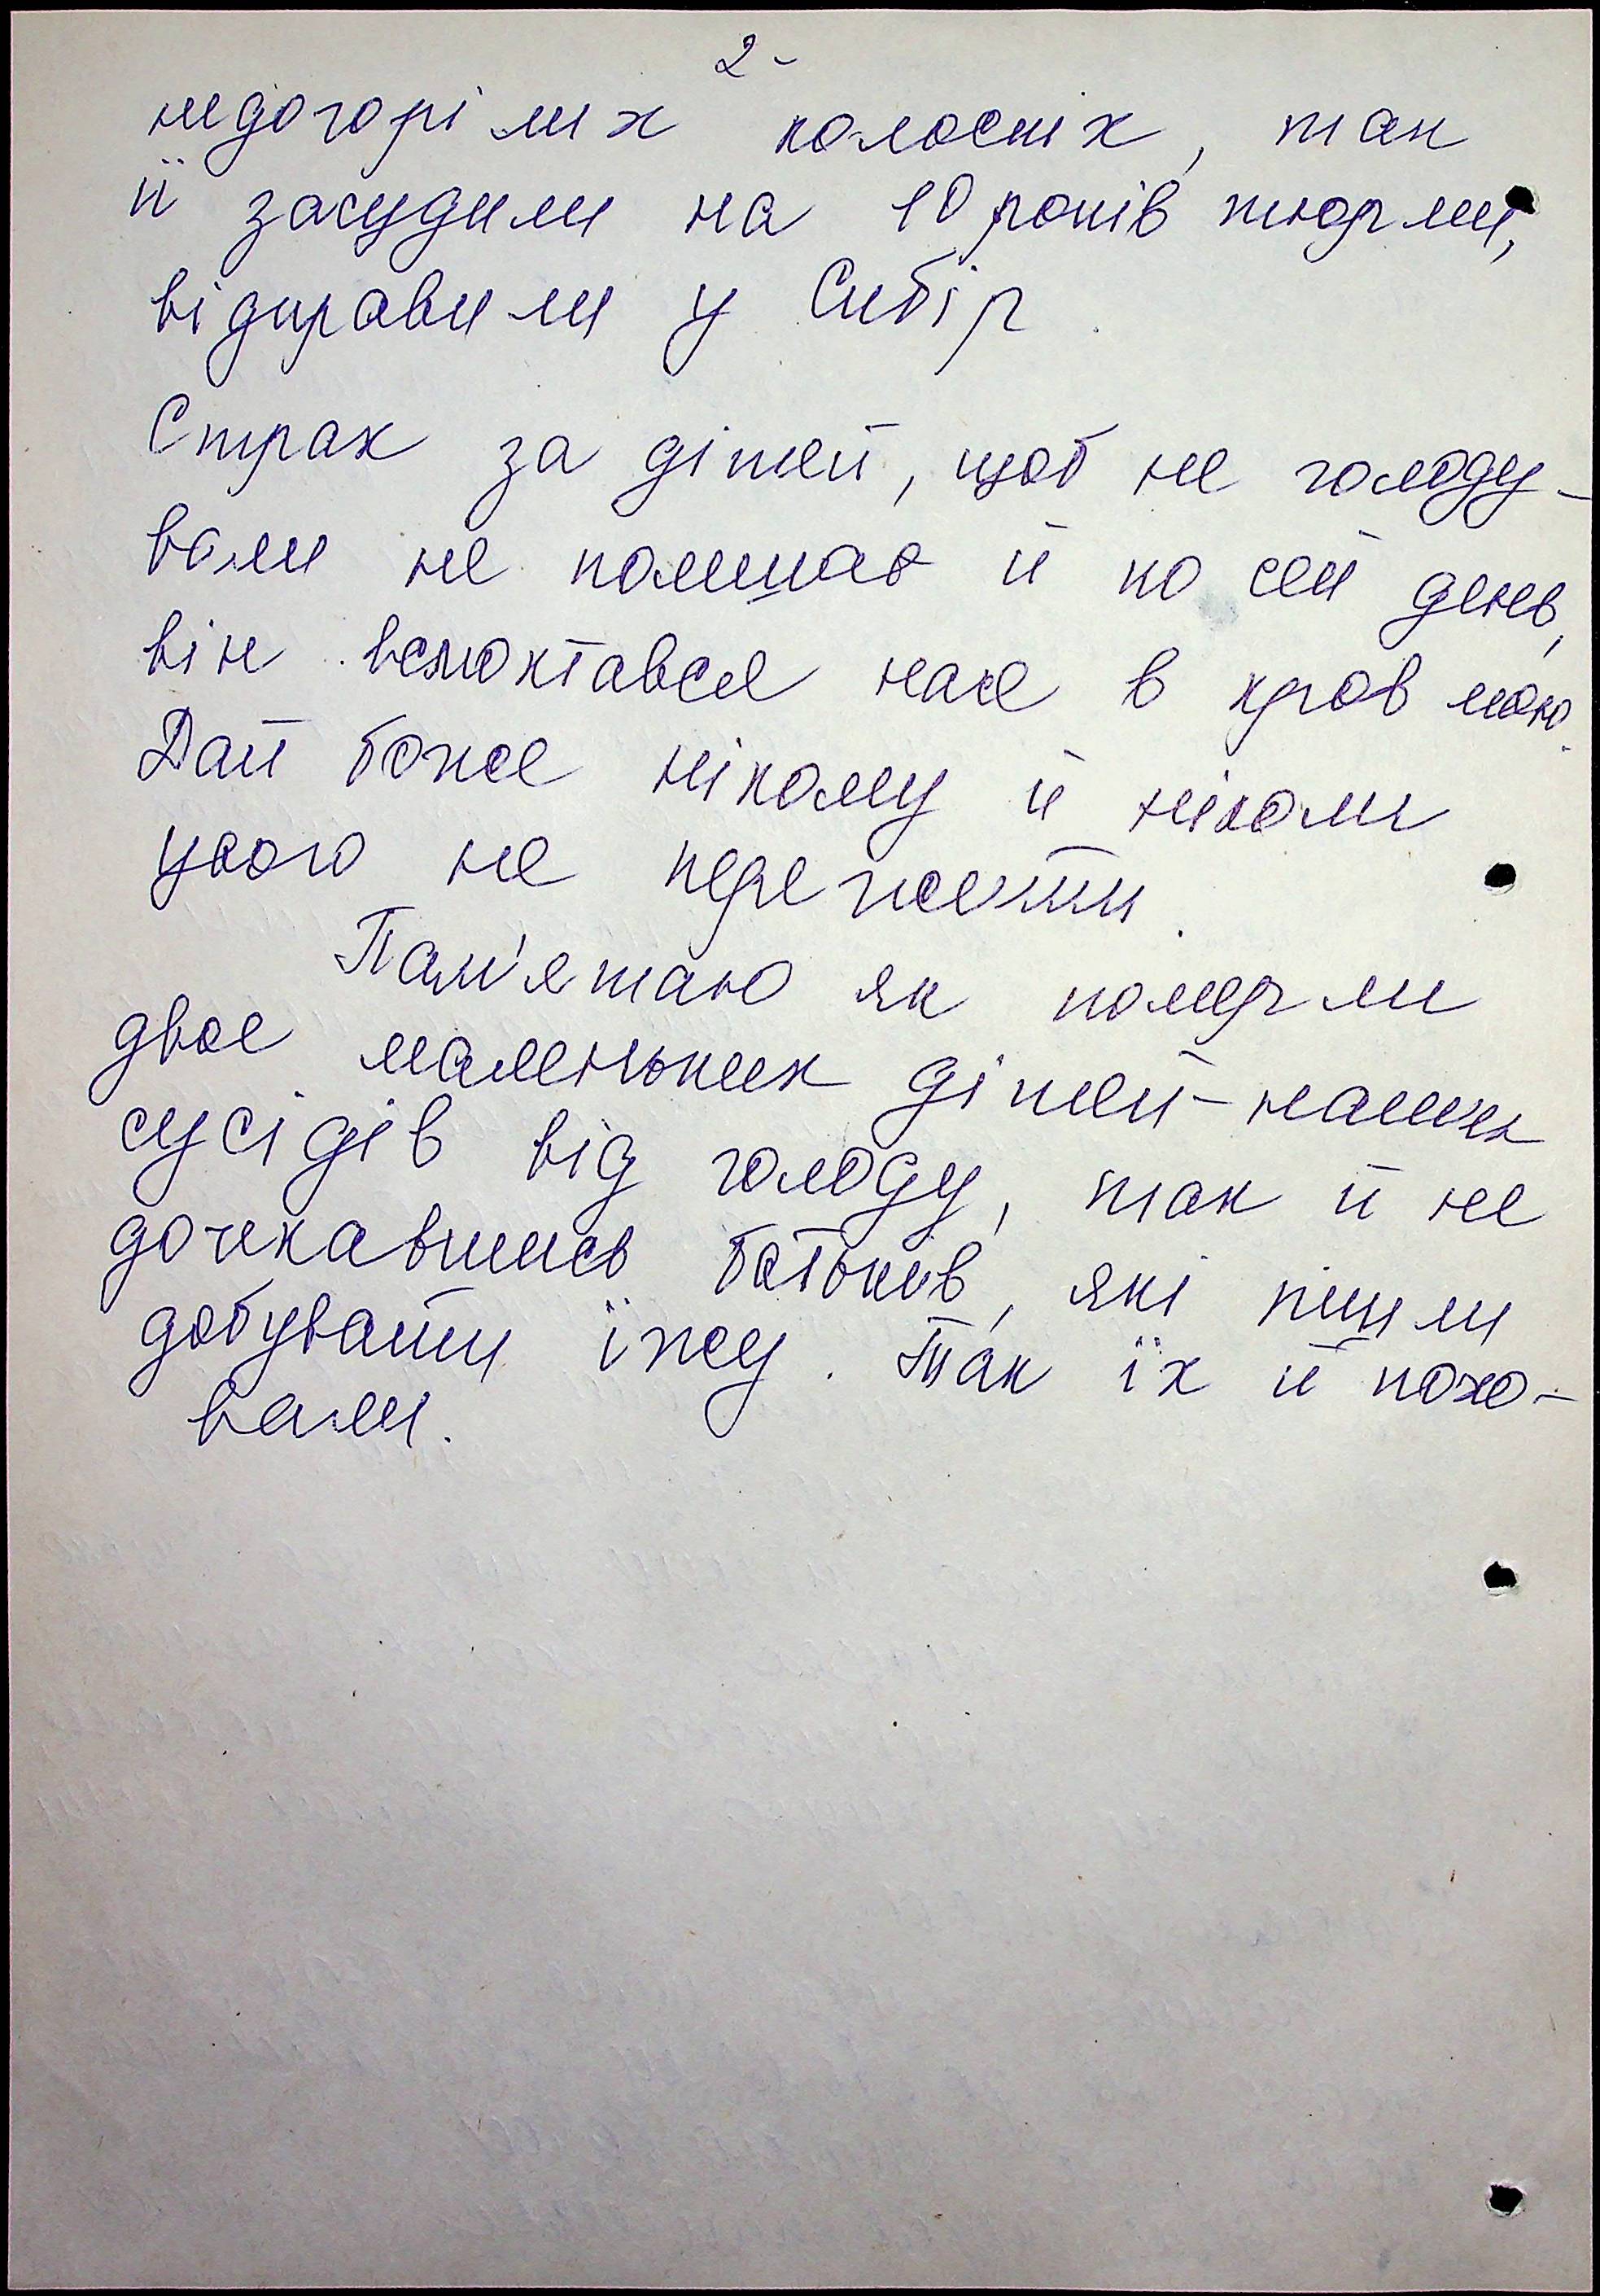 2-
недогорілих колосків, так
її засудили на 10 років тюрми,
відправили у Сибір.
Страх за дітей, щоб не голоду-
вали не полишає й по сей день,
він всмоктався наче в кров мою.
Дай боже нікому й ніколи
цього не пережити.
Пам'ятаю як померли
двоє маленьких дітей - наших
сусідів від голоду, так й не
дочекавшись батьків, які пішли
добувати їжу. Так їх й похо-
вали.